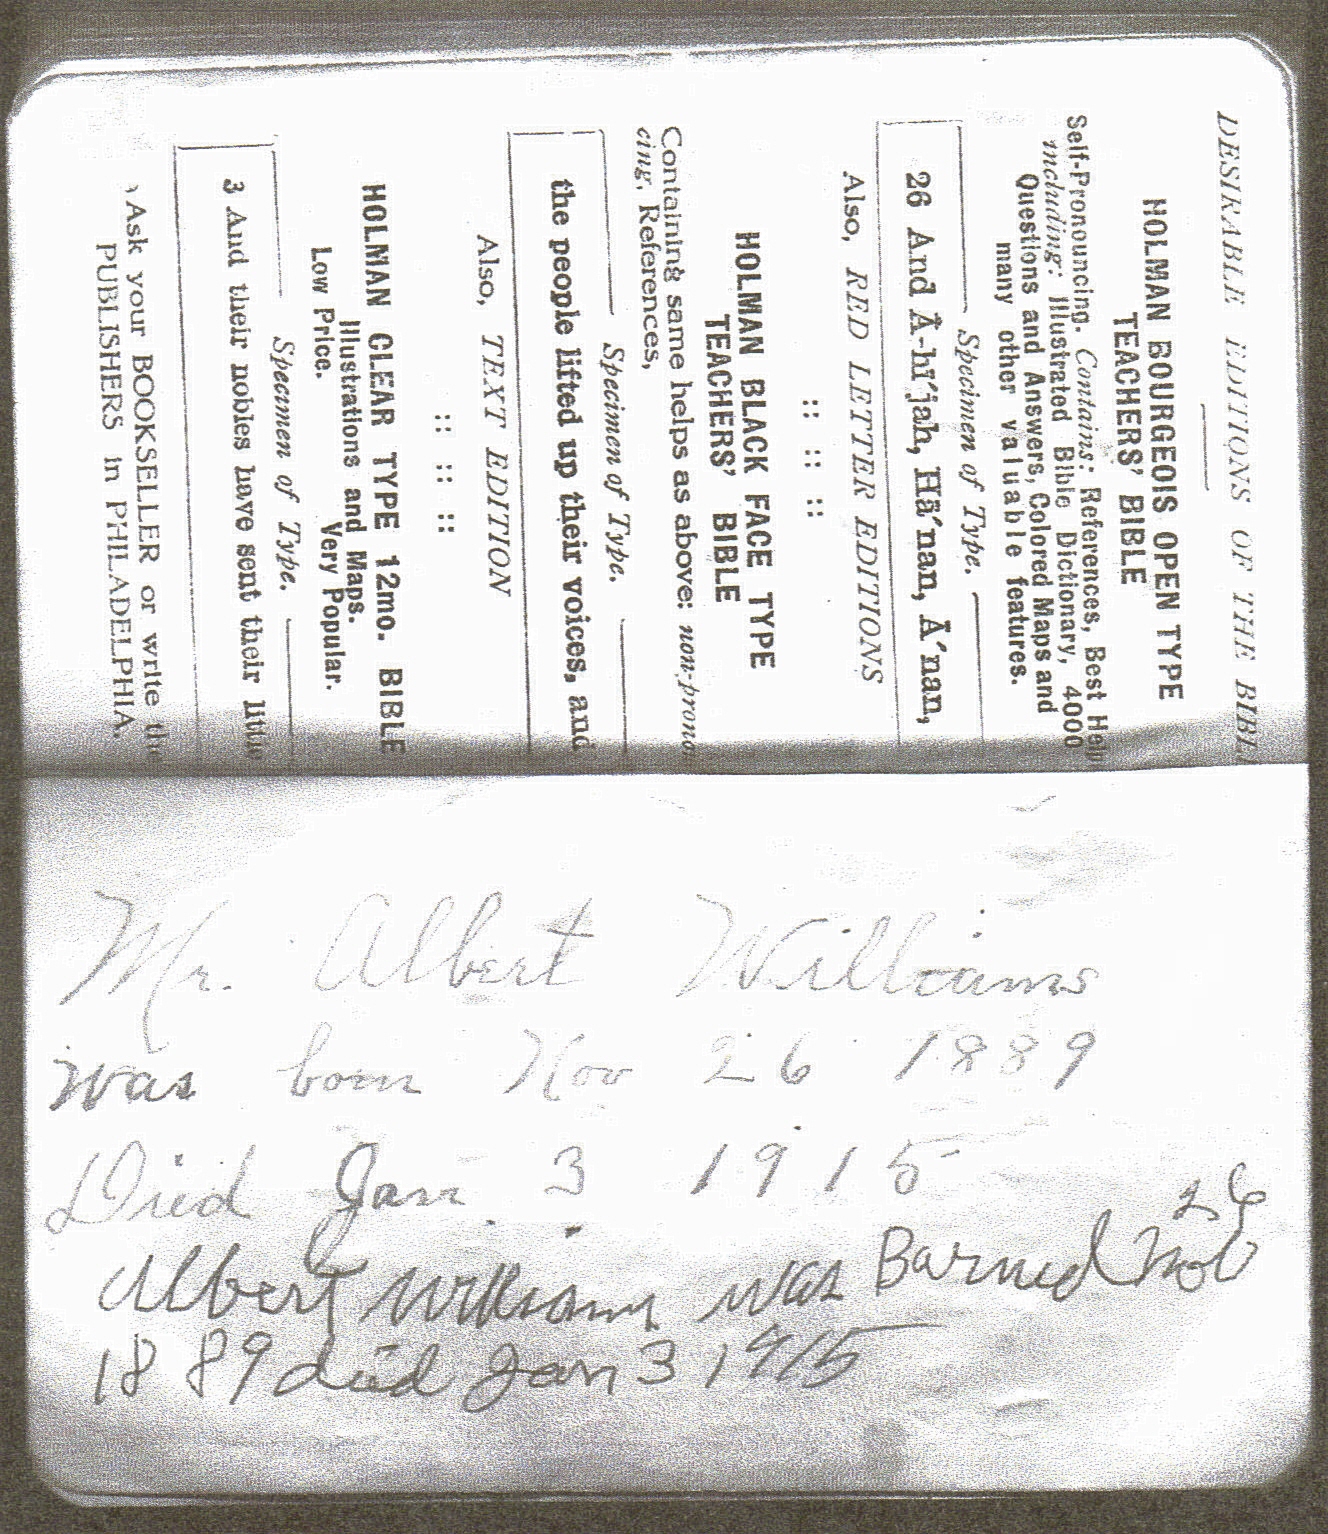 DESIRABLE EDITIONS OF THE BIBL
HOLMAN BOURGEOIS OPEN TYPE
TEACHERS' BIBLE
Self-Pronouncing. Contains: References, Best Help
including: Illustrated Bible Dictionary, 4000
Questions and Answers, Colored Maps and
many other valuable features.
Specimen of Type.
26 And Ā-hī′jah, Hā′nan, Ā′nan,
Also, RED LETTER EDITIONS
:: :: ::
HOLMAN BLACK FACE TYPE
TEACHERS' BIBLE
Containing same helps as above: non-prono
cing, References,
Specimen of Type.
the people lifted up their voices, and
Also, TEXT EDITION
:: :: ::
HOLMAN CLEAR TYPE 12mo. BIBLE
Illustrations and Maps.
Low Price. Very Popular.
Specimen of Type.
3 And their nobles have sent their little
Ask your BOOKSELLER or write the
PUBLISHERS in PHILADELPHIA.
Mr. Albert Williams
was born Nov 26 1889
Died Jan 3 1915
26
Albert Williams was Barned Nov
1889 died Jan 3 1915